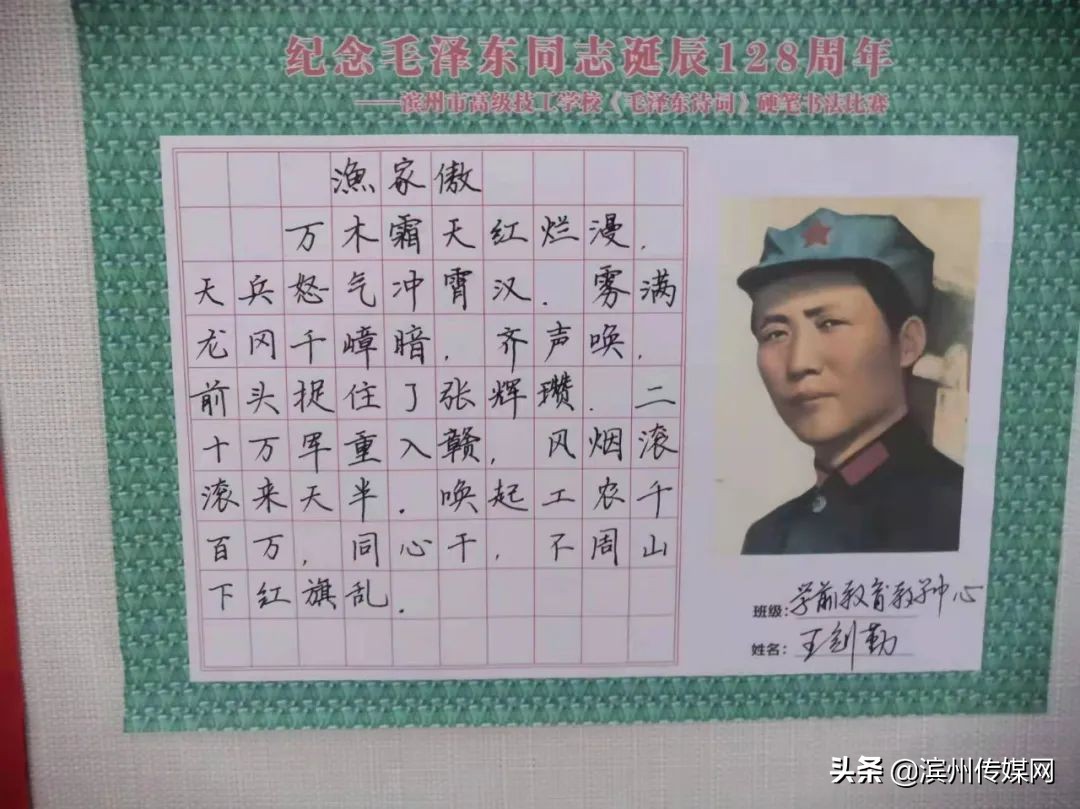 纪念毛泽东同志诞辰128周年
——滨州市高级技工学校《毛泽东诗词》硬笔书法比赛
漁家傲
万木霜天红烂漫.
天兵怒气冲霄汉.雾满
龙冈千嶂暗,齐声唤,
前头捉住了张辉瓒.二
十万军重入赣,风烟滚
滚来天半.唤起工农千
百万,同心干,不周山
下红旗乱.
班级:学前教育教学中心
姓名:王剑勤
头条 @滨州传媒网